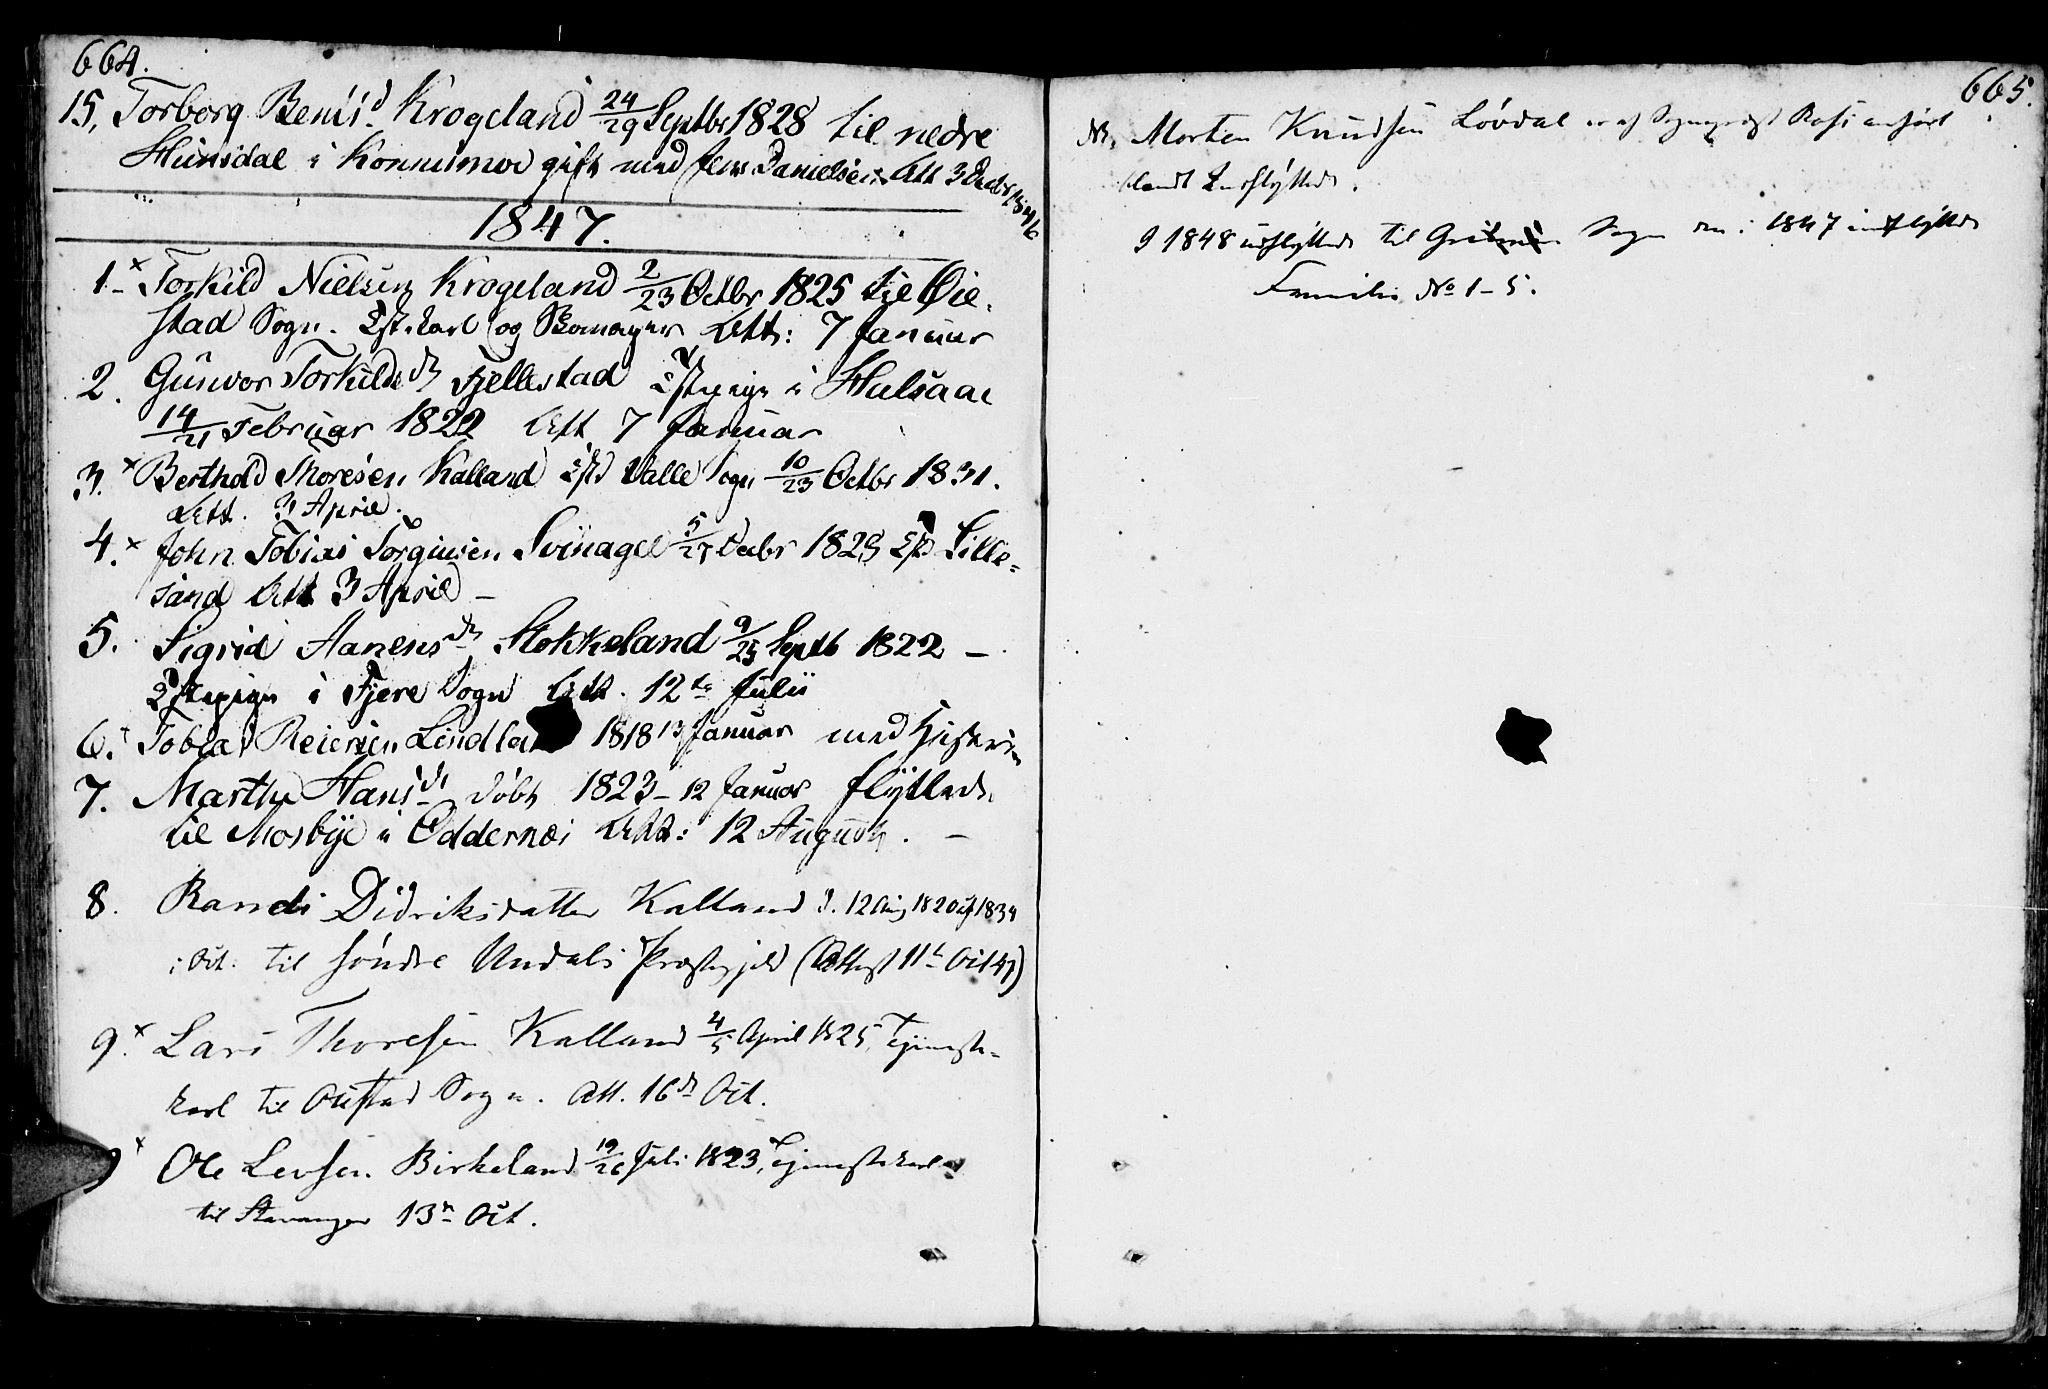 664.
15, Torborg Bentsd Krogeland 24/29 Septbr 1828 til nedre
Hunsdal i Konnismoe gift med Jens Danielsen Att 3 Decbr 1846
1847.
1 - x Torkild Nielsen Krogeland 2/23 Octbr 1825 til Øie-
stad Sogn. Tst.karl og Skomager Att: 7 Januar
2. Gunvor Torkildsdr Fjellestad Tstepige i Halsaae
14/21 Februar 1822 Att 7 Januar
3. x Berthold Thoresen Kalland Valle Sogn 10/23 Octbr 1831.
Att. 3 April.
4. x John Tobias Torginsen Svinagel 5/27 Decbr 1829 Lille-
sand Att 3 April -
5. Sigrid Aanensdr Stokkeland 9/25 Septb 1822 -
Tstepige i Fjere Sogn Att. 12te Julii
6. Tobias Reiersen Lindland 1818 13 Januar med Hustruen
7. Marthe Hansdr døbt 1823 - 12 Januar flyttede
til Mosbye i Oddernæs Att: 12 August. -
8. Randi Didriksdatter Kalland d. 12 Aug 1820 1834
i Oct. til søndre Undals Præstegjeld (Attest 11te Oct 47)
9. x Lars Thoresen Kalland 4/5 April 1825, Tjeneste-
karl til Øiestad Sogn. Att. 16de Oct.
9 x Ole Levsen Birkeland 19/26 Juli 1823, Tjenestekarl
til Stavanger 13de Oct.
665.
NB. Morten Knudsen Løvdal er af Sognepræst Ross anført
blandt Indflyttede.
I 1848 udflyttede til Sogn den i 1847 indflyttede
Familie No 1-5.